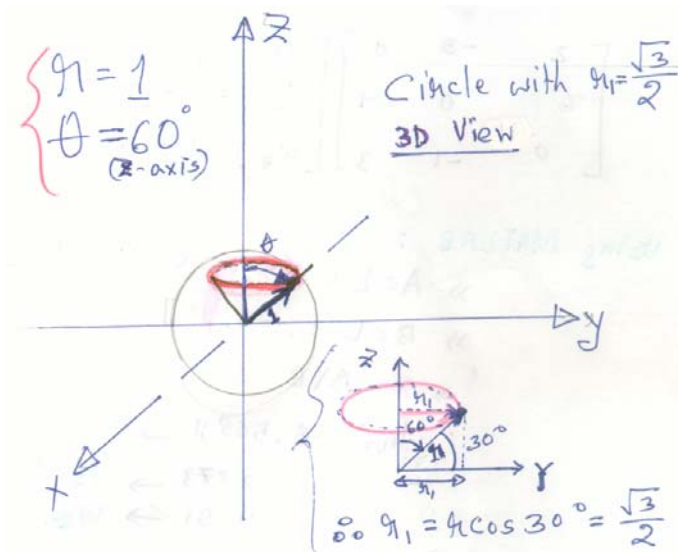 Z
r = 1
θ = 60°
(z-axis)
Circle with r₁ = √3/2
3D View
θ
1
y
x
Z
r₁
60°
30°
r₁
Y
∴ r₁ = r cos 30° = √3/2